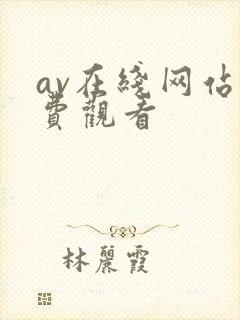 av在綫网佔
費觀看
林麗霞